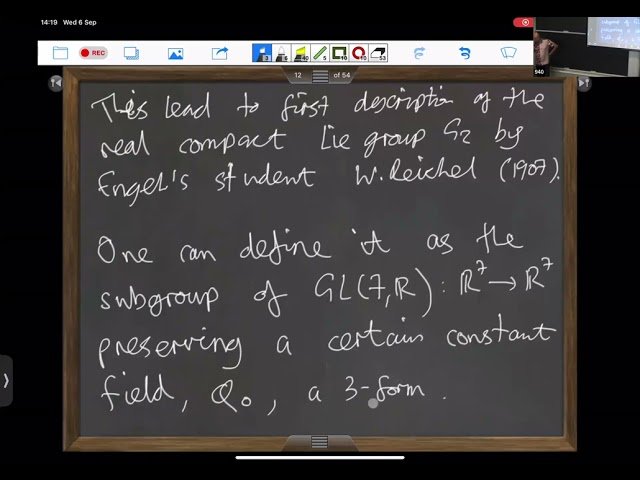 14:19 Wed 6 Sep
REC
12 of 54
This lead to first description of the
real compact Lie group G₂ by
Engel's student W. Reichel (1907).
One can define it as the
subgroup of GL(7,ℝ): ℝ⁷ → ℝ⁷
preserving a certain constant
field, Q₀, a 3-form.